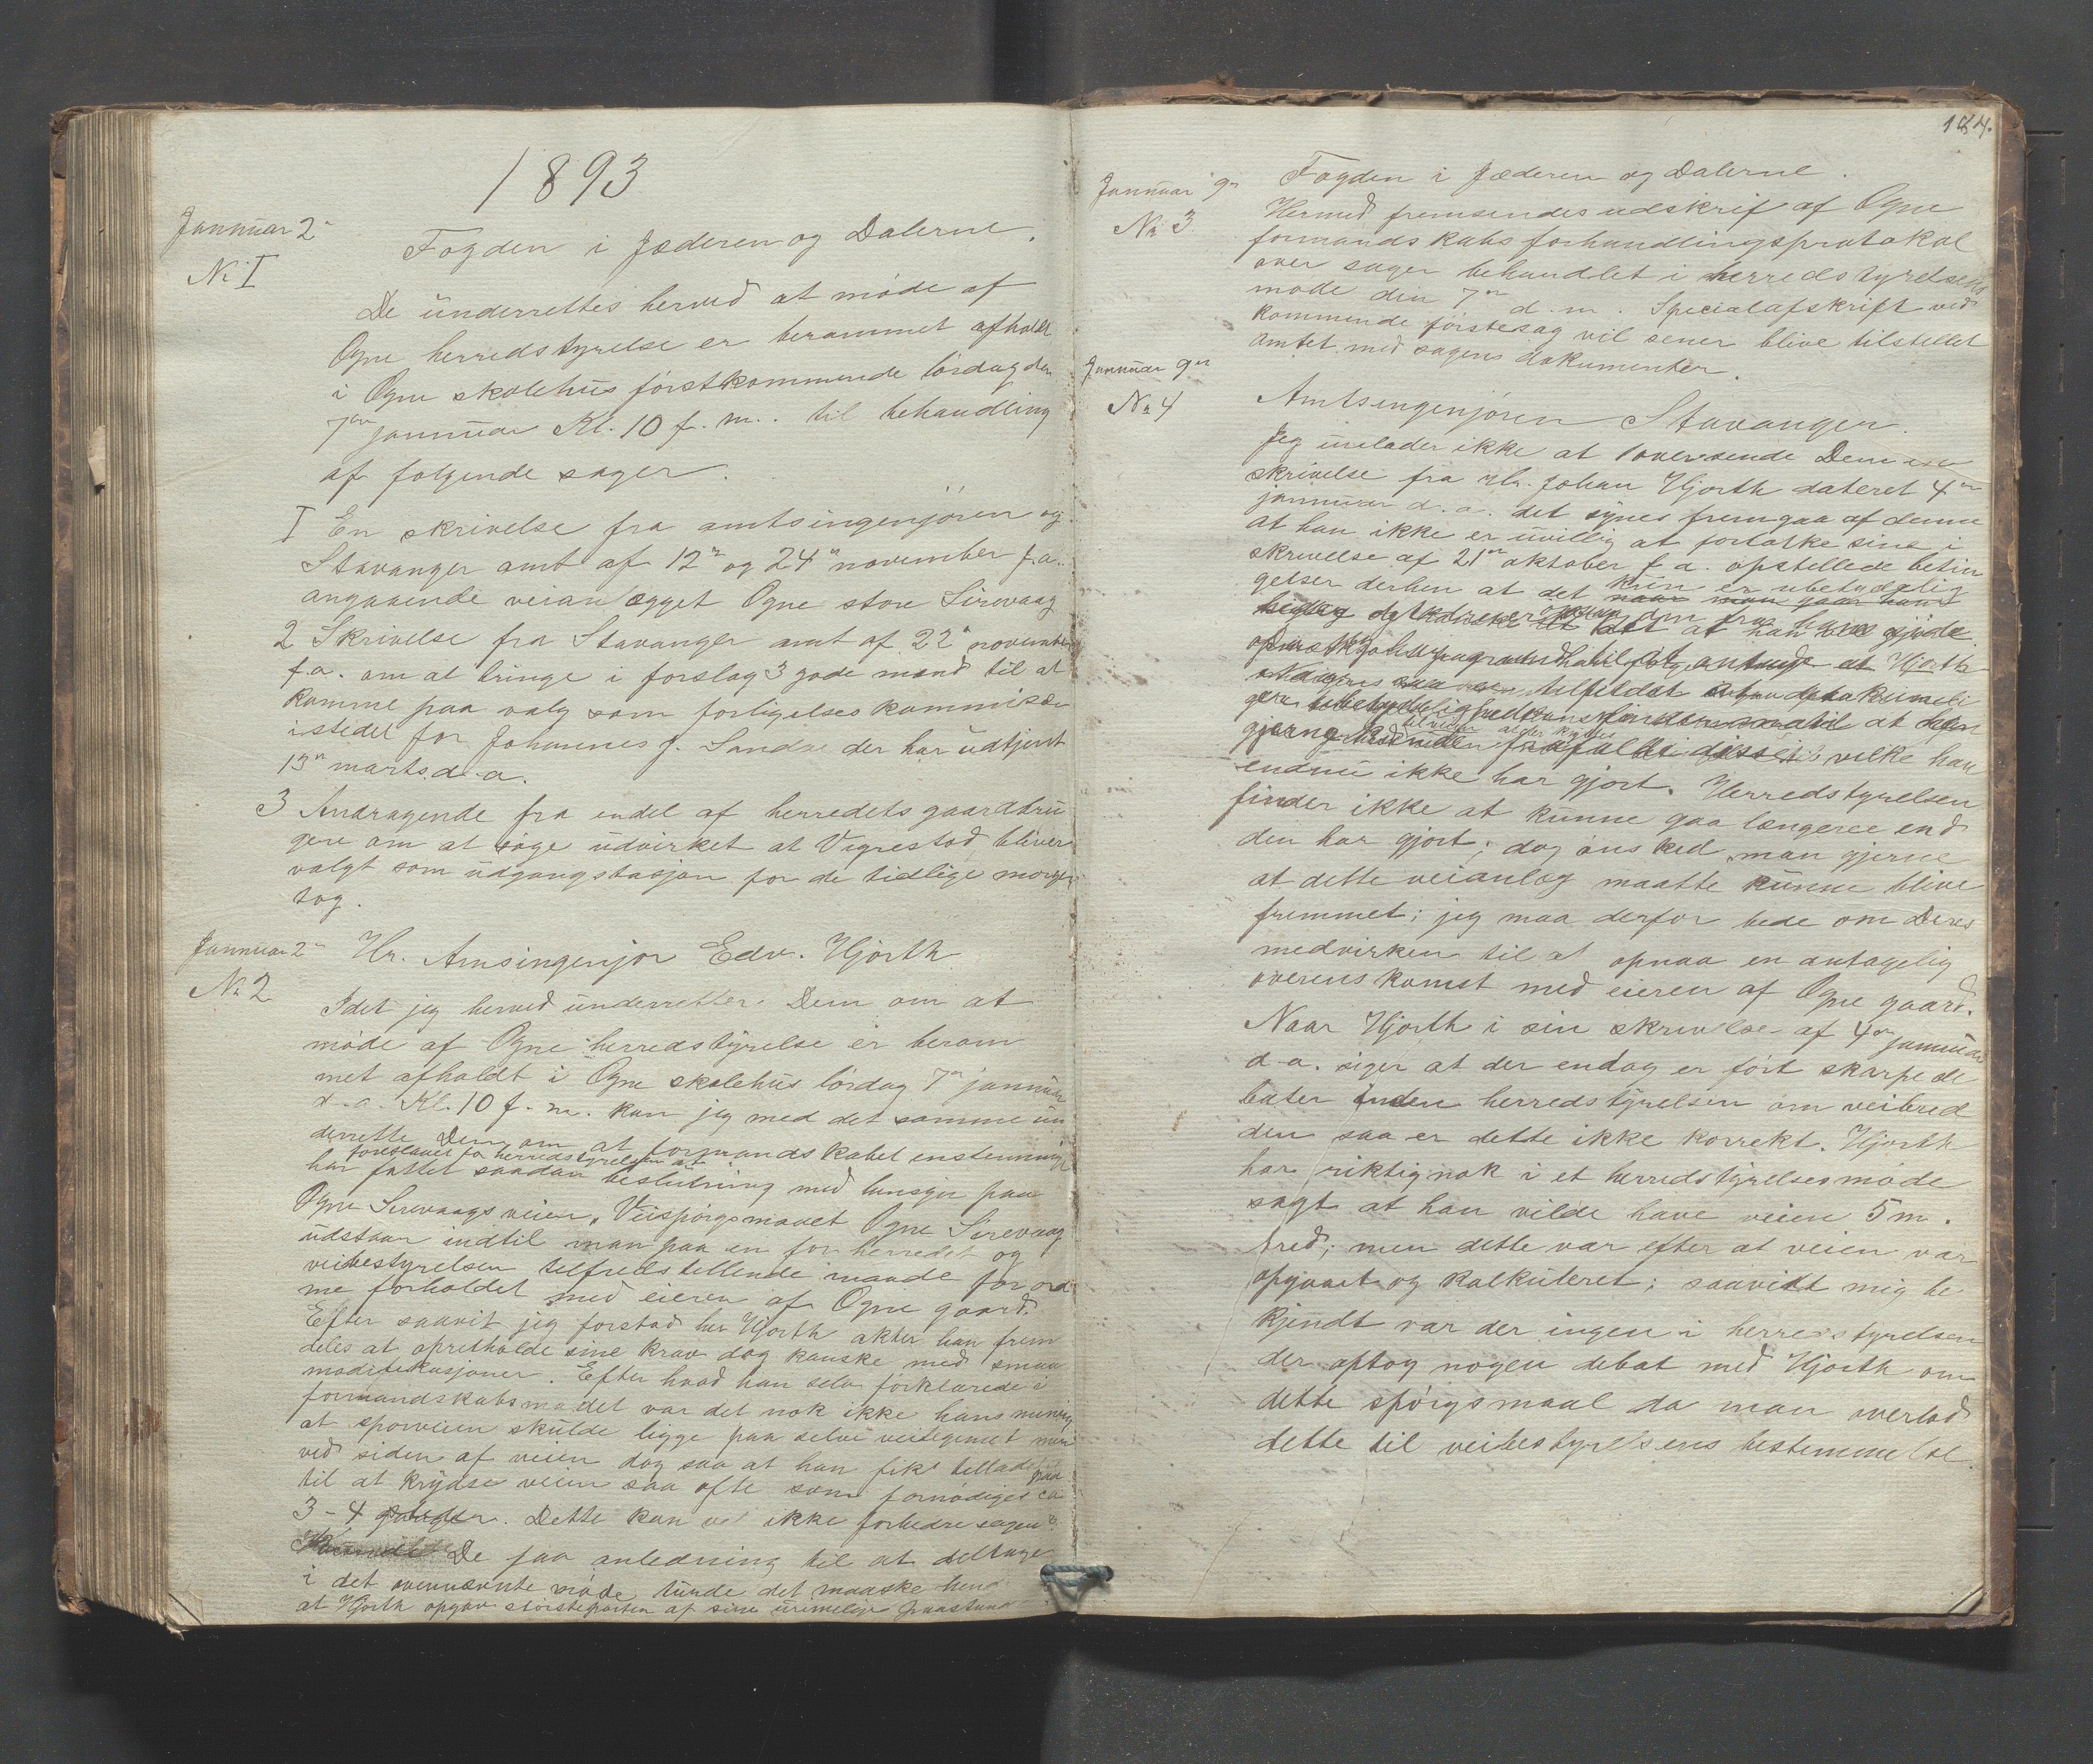 1893
Januar 2n
No I
Fogden i Jæderen og Dalerne.
De underrettes herved at möde af
Ogne herredstyrelse er berammet afholdt
i Ogne skolehus förstkommende lördag den
7de januar Kl. 10 f. m.. til behandling
af folgende sager.
I En skrivelse fra amtsingenjören og
Stavanger amt af 12n og 24n november f.a.
angaaende veianlægget Ogne store Sirevaag
2 Skrivelse fra Stavanger amt af 22n november
f.a. om at bringe i forslag 3 gode mænd til at
komme paa valg som forligelses kommisær
istedet for Johannes J. Sandve der har udtjent
13n marts d.a.
3 Andragende fra endel af herredets gaardbru
gere om at söge udvirket at Vigrestad bliver
valgt som udgangstasjon for de tidlige morgen
tog.
Januar 2n
No 2
Hr. Amsingenjör Edv. Hjorth
Idet jeg herved underretter Dem om at
möde af Ogne herredstyrelse er beram
met afholdt i Ogne skolehus lördag 7n januar
d.a. Kl. 10 f. m. kan jeg med det samme un
derrette Dem om at formandskabet enstemmig
foreslaaet for herredstyrelsen at
har fattet saadan beslutning med hensyn paa
Ogne Sirevaags veien, Veispörgsmaalet Ogne Sirevaag
udstaar indtil man paa en for herredet og
veibestyrelsen telfredstellende maade faar ord
ne forholdet med eieren af Ogne gaard.
Efter saavit jeg forstod her Hjorth akter han frem
deles at opretholde sine krav dog kanske med smaa
modifikasjoner. Efter hvad han selv forklarede i
formandskabsmödet var det nok ikke hans mening
at sporveien skulde ligge paa selve veilegemet men
ved siden af veien dog saa at han fik tilladelse
til at krydse veien saa ofte som fornödiges ca
paa
3-4 . Dette kan vel ikke forbedre sagen.
De faa anledning til at deltage
i det ovennævnte möde turde det maaske hende
at Hjorth opgav störsteparten af sine urimelige paastand
184.
Januar 9n
No 3
Fogden i Jæderen og Dalerne.
Hermed fremsendes udskrif af Ogne
formandskabs forhandlingsprotokol
over sager behandlet i herredstyrelsens
möde den 7n d. m. Specialafskrift ved
kommende förstesag vil sener blive tilstellet
amtet med sagens dokumenter.
Januar 9n
No 4
Amtsingenjören Stavanger.
Jeg unlader ikke at oversende Dem en
skrivelse fra Hr. Johan Hjorth dateret 4n
januar d.a. det synes fremgaa af denne
at han ikke er uvillig at forlatke sine i
skrivelse af 21n oktober f.a. opstellede betin
gelser derhen at det kun er ubetydelig
at han
at antage at Hjorth
at den
gjerne vilke han
endnu ikke har gjort. Herredstyrelsen
finder ikke at kunne gaa længere end
den har gjort; dog önsked man gjerne
at dette veianlæg maatte kunne blive
fremmet; jeg maa derfor bede om Deres
medvirken til at opnaa en antagelig
overenskomst med eieren af Ogne gaard.
Naar Hjorth i sin skrivelse af 4n januar
d.a. siger at der endog er fört skarpe de
bater inden herredstyrelsen om veibred
den saa er dette ikke korrekt. Hjorth
har riktignok i et herredstyrelsesmöde
sagt at han vilde have veien 5 m.
bred; men dette var efter at veien var
opgaaet og kalkuleret; saavidt mig be
kjendt var der ingen i herredstyrelsen
der optog nogen debat med Hjorth om
dette spörgsmaal da man overlod
dette til veibestyrelsens bestemmelse.